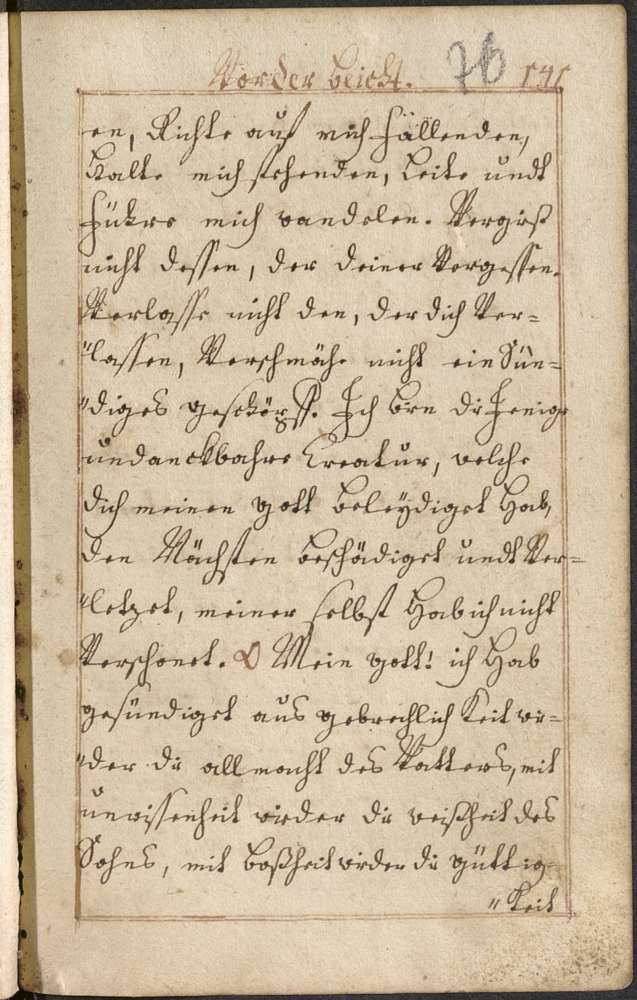 Vor der beicht. 76 141
en, Richte auf mich fallenden,
Halte mich stehenden, Leite undt
führe mich wandelen. Vergiß
nicht dessen, der deiner Vergessen.
Verlasse nicht den, der dich Ver=
"lassen, Verschmähe nicht ein Sün=
"diges geschöpff. Ich bin die Jenige
undanckbahre Creatur, welche
dich meinen gott beleydiget hab,
den Nächsten beschädiget undt Ver=
"letzet, meiner selbst hab ich nicht
Verschonet. O Mein gott! ich hab
gesündiget aus gebrechlichkeit wi=
"der die allmacht des Vatters, mit
unwissenheit wieder die weißheit des
Sohns, mit boßheit wieder die güttig=
"keit